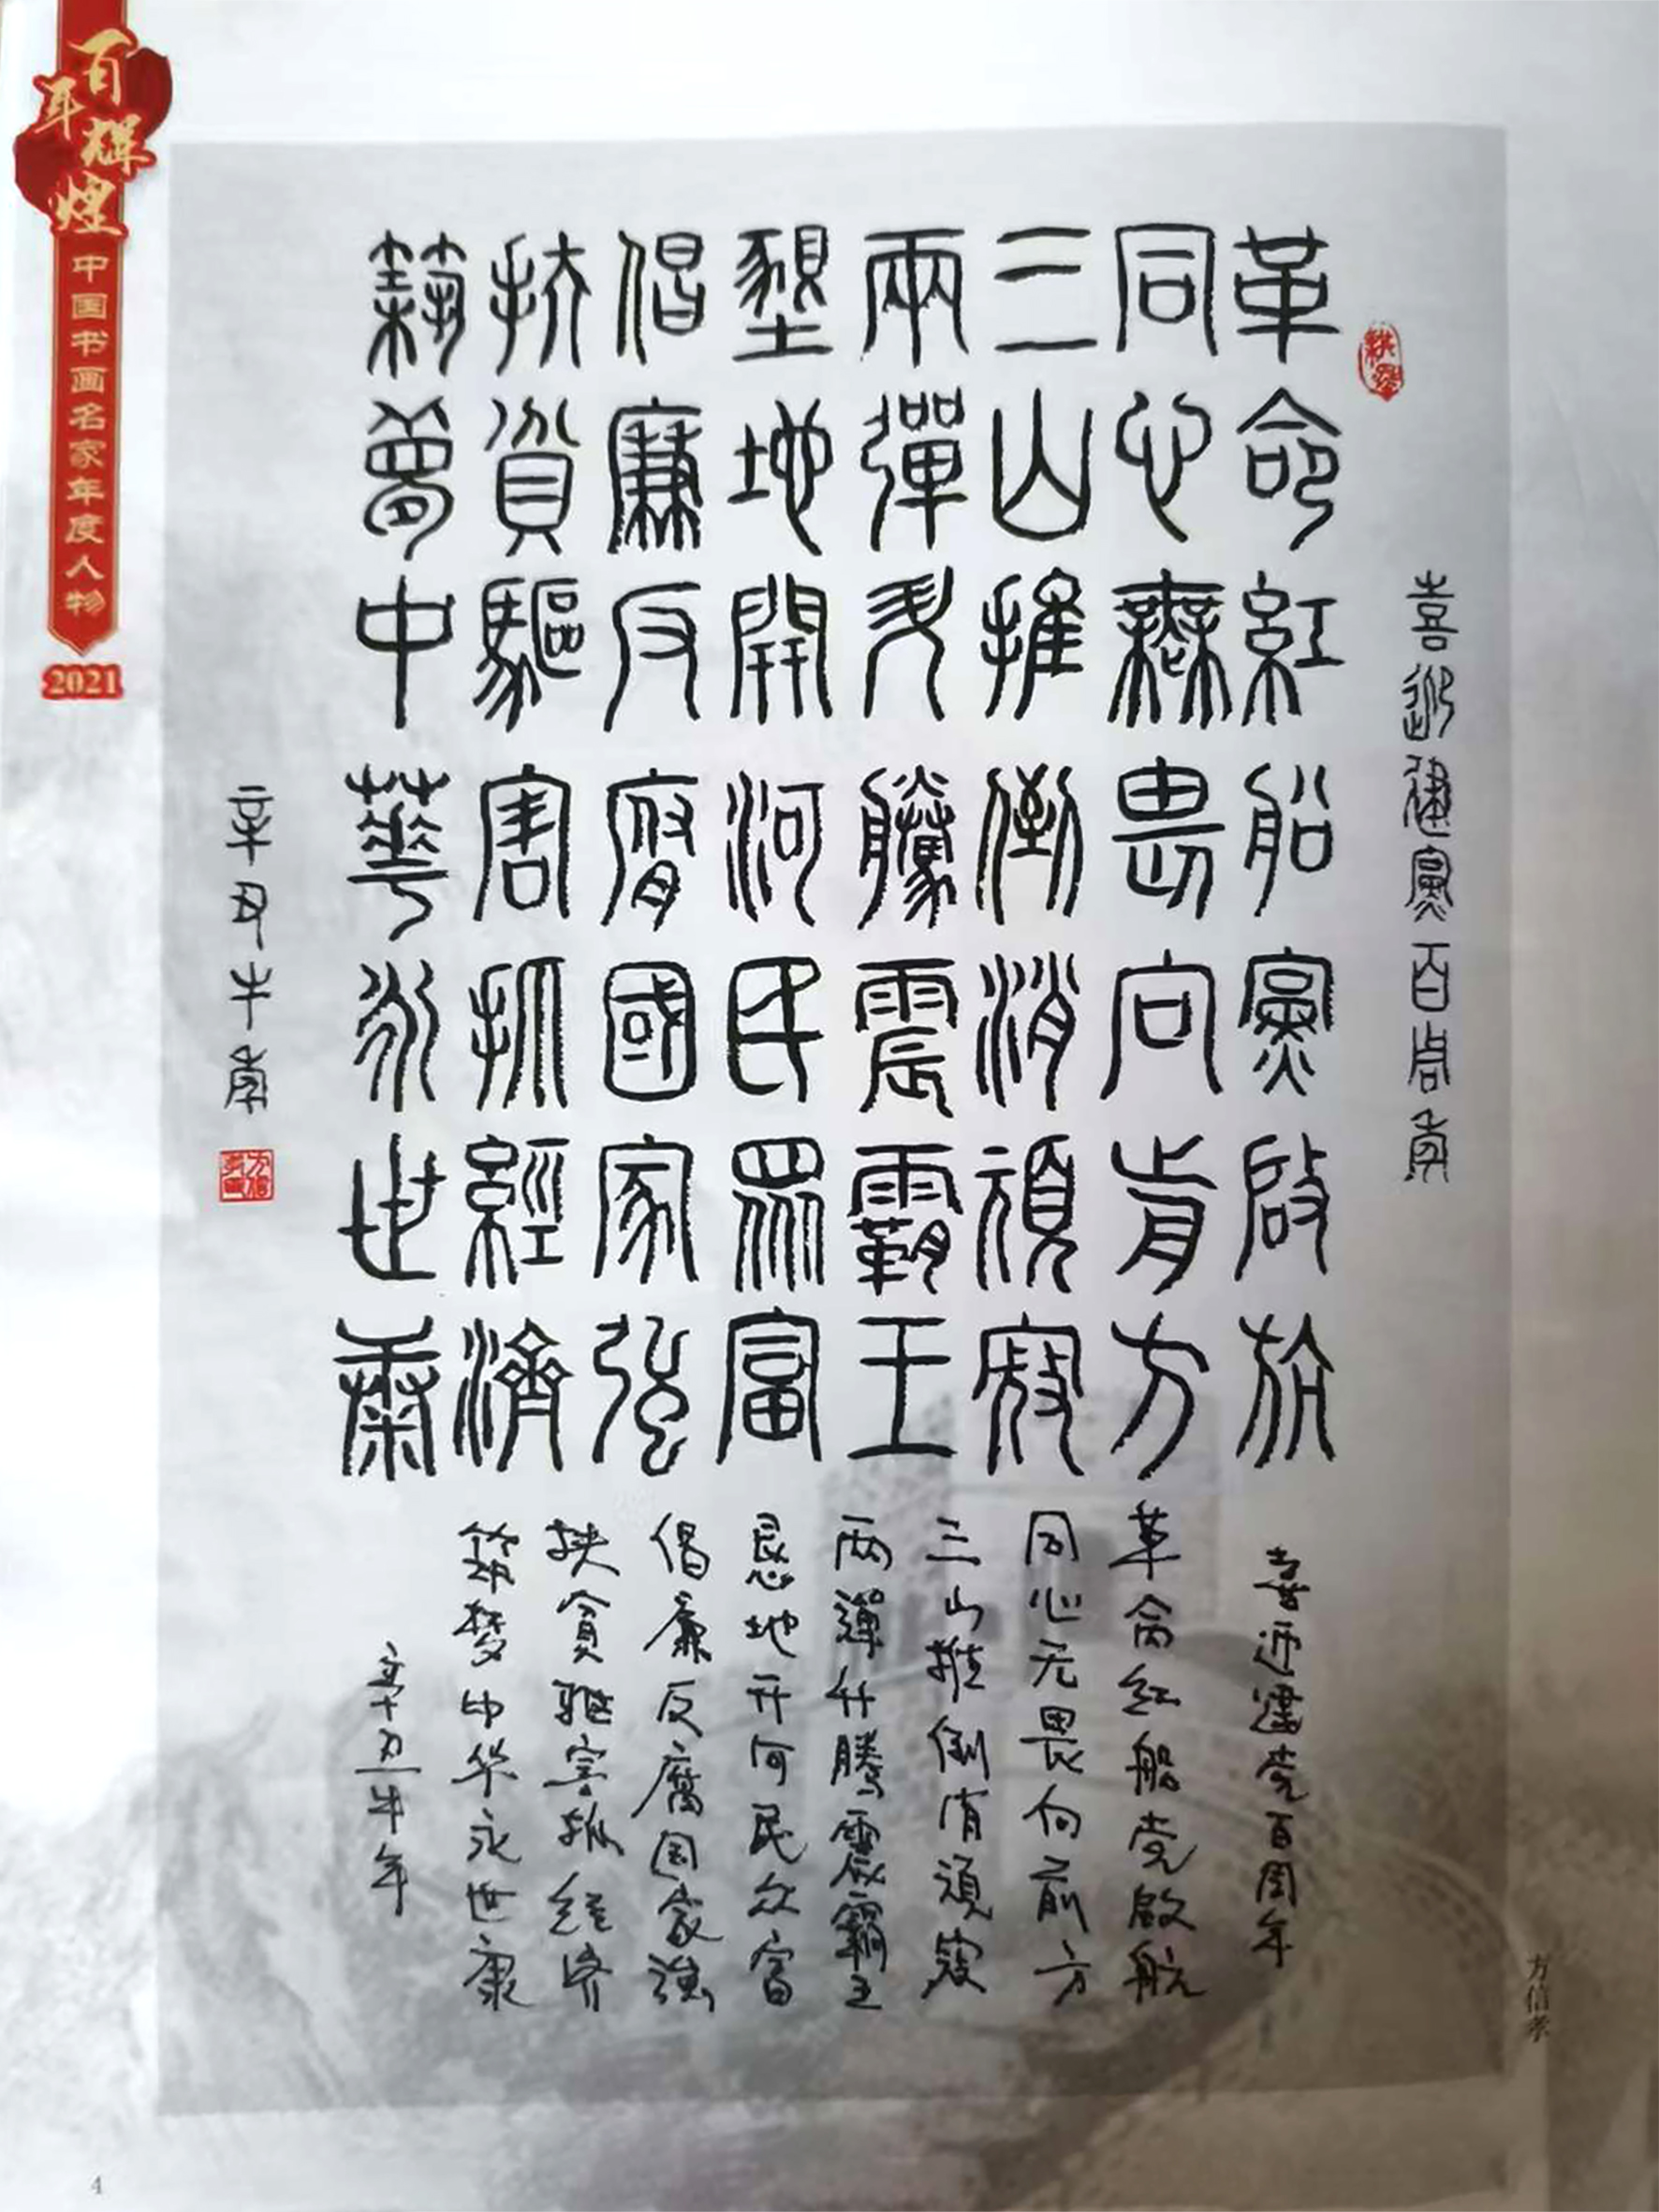 百年辉煌
中国书画名家年度人物
2021
喜迎建黨百周年
革命紅船黨啟航
同心無畏向前方
三山推倒消頑寇
兩彈升騰震霸王
墾地開河民眾富
倡廉反腐國家強
扶貧驅害抓經濟
築夢中華永世康
辛丑牛年
喜迎建党百周年
革命红船党啟航
同心无畏向前方
三山推倒消顽寇
两弹升腾震霸王
恳地开河民众富
倡廉反腐国家強
扶贫驱害抓经济
筑梦中华永世康
辛丑牛年
方信孝
4